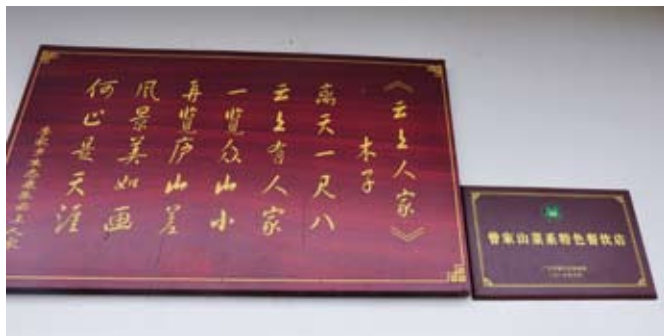 《云上人家》
木子
离天一尺八
云上有人家
一览众山小
再览庐山差
风景美如画
何止是天涯
曾家山菜系特色餐饮店